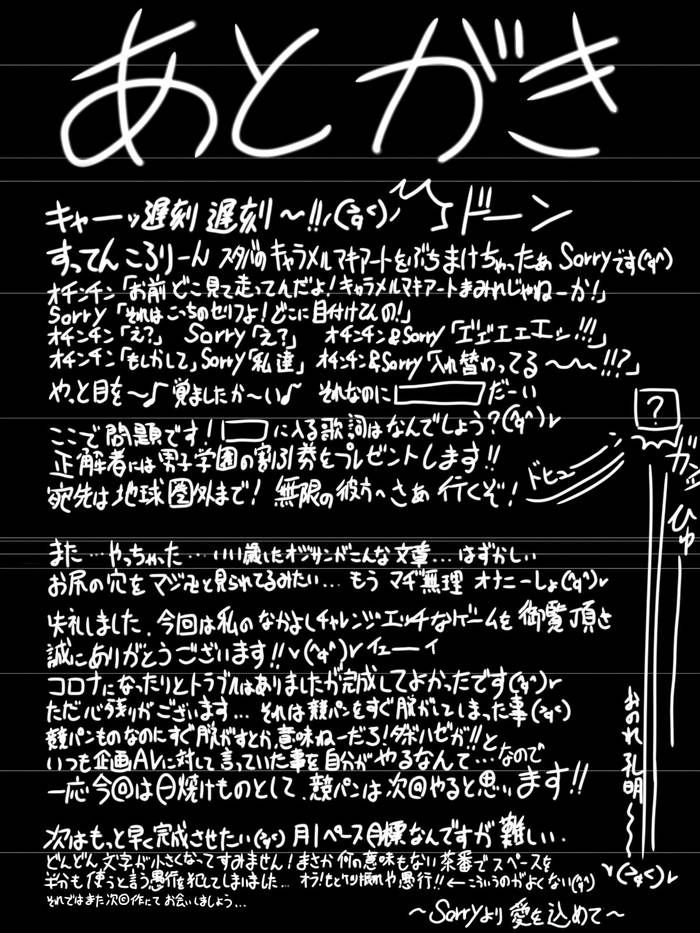 あとがき
キャーッ遅刻 遅刻〜!! ドーン
すってんころりーん スタバのキャラメルマキアートをぶちまけちゃったぁ Sorryです
オチンチン「お前どこ見て走ってんだよ!キャラメルマキアートまみれじゃねーか!」
Sorry「それはこっちのセリフよ!どこに目付けてんの!」
オチンチン「え?」 Sorry「え?」 オチンチン&Sorry「エエエエエッ!!!」
オチンチン「もしかして」Sorry「私達」 オチンチン&Sorry「入れ替わってる〜〜!!?」
やっと目を〜♪覚ましたか〜い♪ それなのに だーい
ここで問題です! に入る歌詞はなんでしょう?
正解者には男子学園の割引券をプレゼントします!!
宛先は地球圏外まで! 無限の彼方へさあ行くぞ!
ドヒュー
?
ガッ
ひゅ
おのれ孔明〜
また…やっちゃった…いい歳したオジサンがこんな文章…はずかしい
お尻の穴をマジマジと見られてるみたい…もうマヂ無理 オナニーしょ
失礼しました。今回は私のなかよしチャレンジ・エッチなゲームを御覧頂き
誠にありがとうございます!! イェーーイ
コロナになったりとトラブルはありましたが完成してよかったです
ただ心残りがございます…それは競パンをすぐ脱がしてしまった事
競パンものなのにすぐ脱がすとか意味ねーだろ!ダボハゼが!!と
いつも企画AVに対して言っていた事を自分がやるなんて…なので
一応今回は日焼けものとして、競パンは次回やると思います!!
次はもっと早く完成させたい 月1ペース目標なんですが難しい.
どんどん文字が小さくなってすみません!まさか何の意味もない茶番でスペースを
半分も使うと言う愚行を犯してしまいました… や愚行!!←こういうのがよくない
それではまた次回作にてお会いしましょう…
〜Sorryより愛を込めて〜